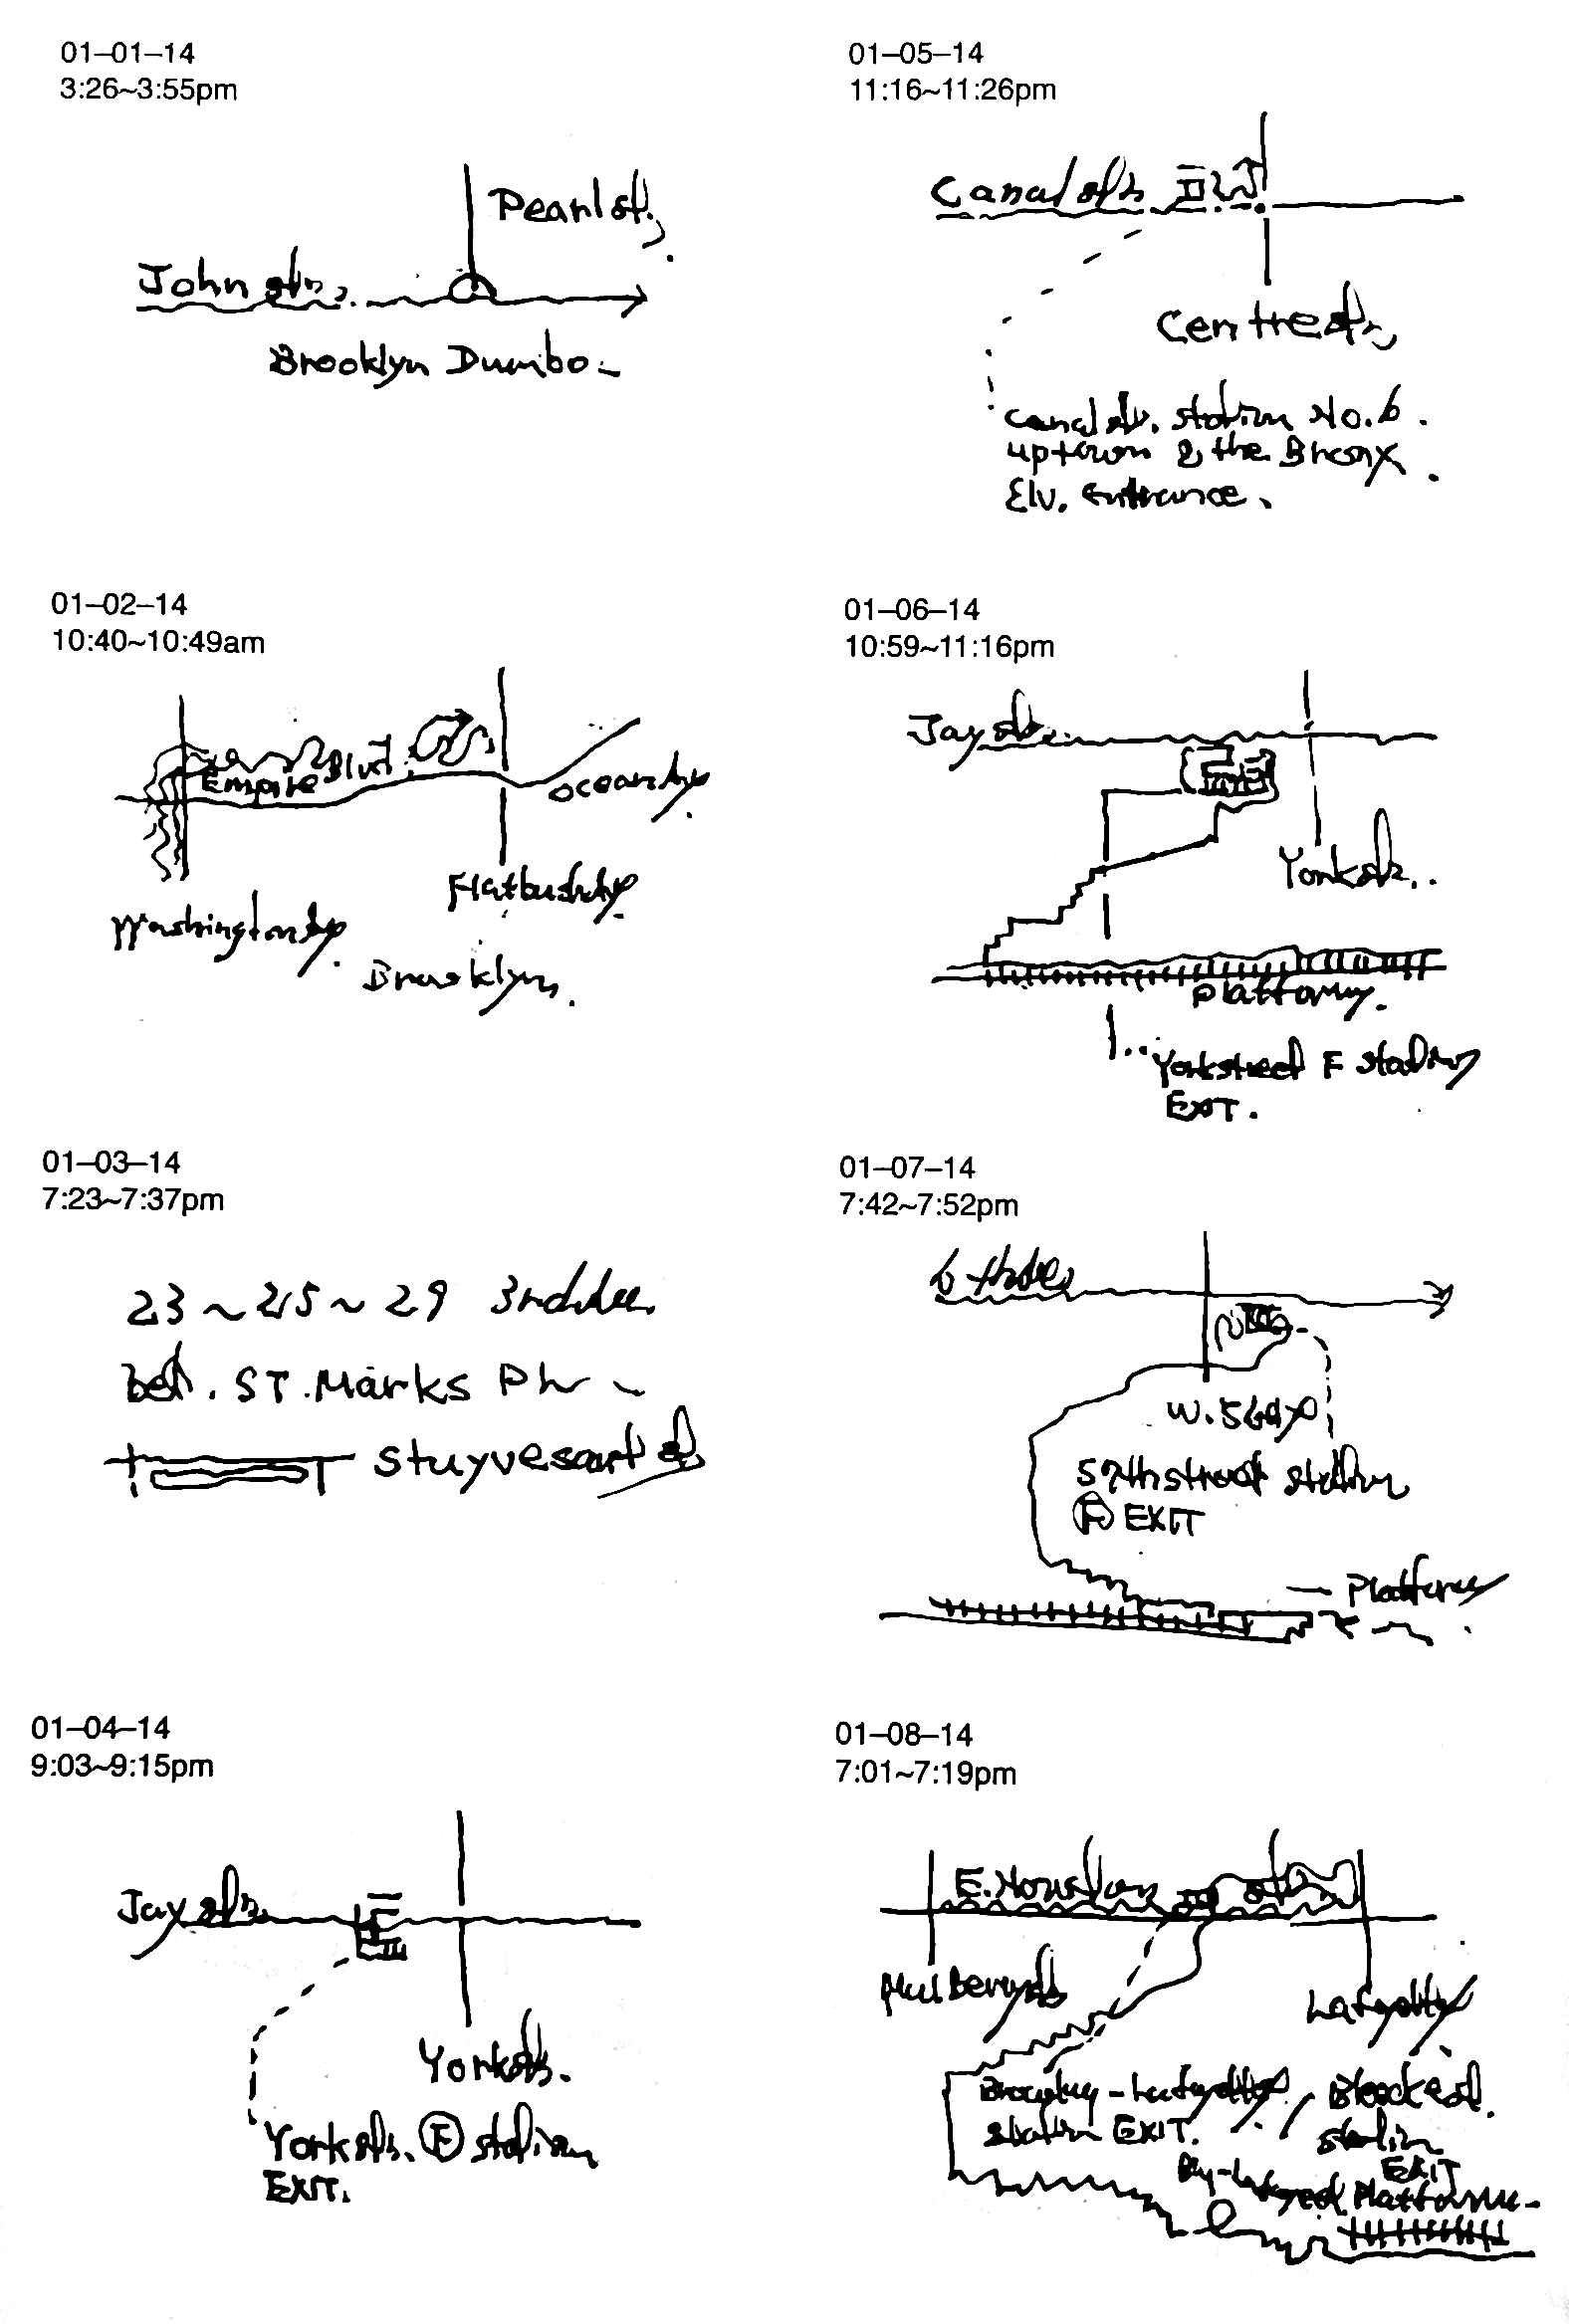 01–01–14
3:26~3:55pm
Pearl st.
John st.
Brooklyn Dumbo.
01–02–14
10:40~10:49am
Empire Blvd.
Ocean Av.
Flatbush Av.
Washington Av.
Brooklyn.
01–03–14
7:23~7:37pm
23 ~ 25 ~ 29 3rd Ave.
bet. ST. Marks Pl. ~
Stuyvesant st.
01–04–14
9:03~9:15pm
Jay st.
York st.
York st. F station
EXIT.
01–05–14
11:16~11:26pm
Canal st.
Centre st.
Canal st. station No.6.
uptown & the Bronx
Elv. entrance.
01–06–14
10:59~11:16pm
Jay st.
York st.
Platform.
York street F station
EXIT.
01–07–14
7:42~7:52pm
6th Ave
W. 56
57th street station
F EXIT
Platform
01–08–14
7:01~7:19pm
E. Houston st.
Mulberry st.
Lafayette
Broadway-Lafayette / Bleecker st.
station EXIT. station
EXIT
Platform